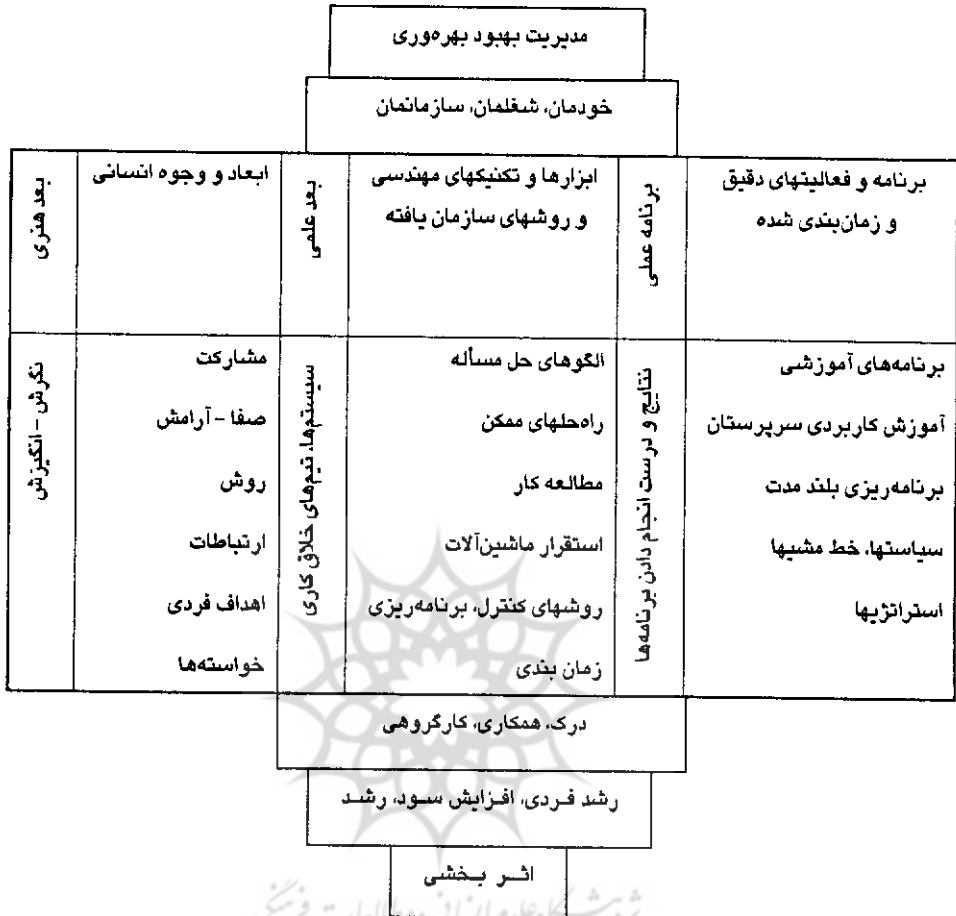 مدیریت بهبود بهره‌وری
خودمان، شغلمان، سازمانمان
برنامه و فعالیتهای دقیق
و زمان‌بندی شده
برنامه عملی
ابزارها و تکنیکهای مهندسی
و روشهای سازمان یافته
بعد علمی
ابعاد و وجوه انسانی
بعد هنری
برنامه‌های آموزشی
آموزش کاربردی سرپرستان
برنامه‌ریزی بلند مدت
سیاستها، خط مشیها
استراتژیها
نتایج و درست انجام دادن برنامه‌ها
الگوهای حل مسأله
راه‌حلهای ممکن
مطالعه کار
استقرار ماشین‌آلات
روشهای کنترل، برنامه‌ریزی
زمان بندی
سیستم‌ها، تیم‌های خلاق کاری
مشارکت
صفا - آرامش
روش
ارتباطات
اهداف فردی
خواسته‌ها
نگرش - انگیزش
درک، همکاری، کارگروهی
رشد فردی، افزایش سود، رشد
اثر بخشی
پژوهشگاه علوم انسانی و مطالعات فرهنگی